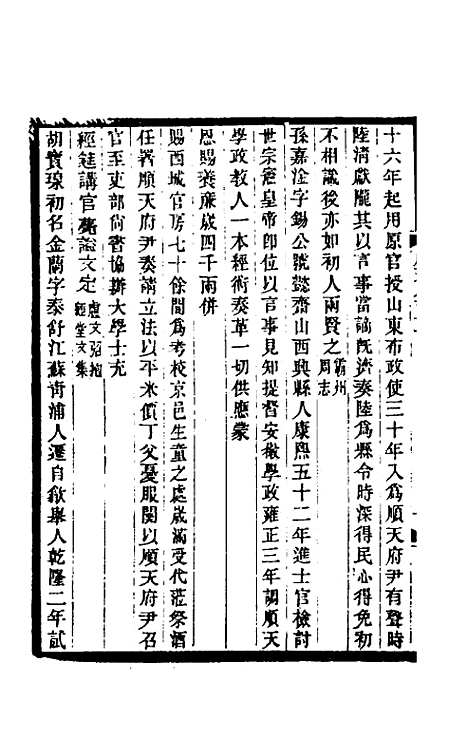 十六年起用原官授山東布政使三十年入爲順天府尹有聲時
陸清獻隴其以言事當謫旣濟奏陸爲縣令時深得民心得免初
不相識後亦如初人兩賢之霸州周志
孫嘉淦字錫公號懿齋山西興縣人康熙五十二年進士官檢討
世宗憲皇帝即位以言事見知提督安徽學政雍正三年調順天
學政教人一本經術奏革一切供應蒙
恩賜養廉歲四千兩併
賜西城官房七十餘間爲考校京邑生童之處歲滿受代蒞祭酒
任署順天府尹奏請立法以平米價丁父憂服闋以順天府尹召
官至吏部尚書協辦大學士充
經筵講官薨諡文定盧文弨抱經堂文集
胡寶瑔初名金蘭字泰舒江蘇青浦人遷自歙舉人乾隆二年試